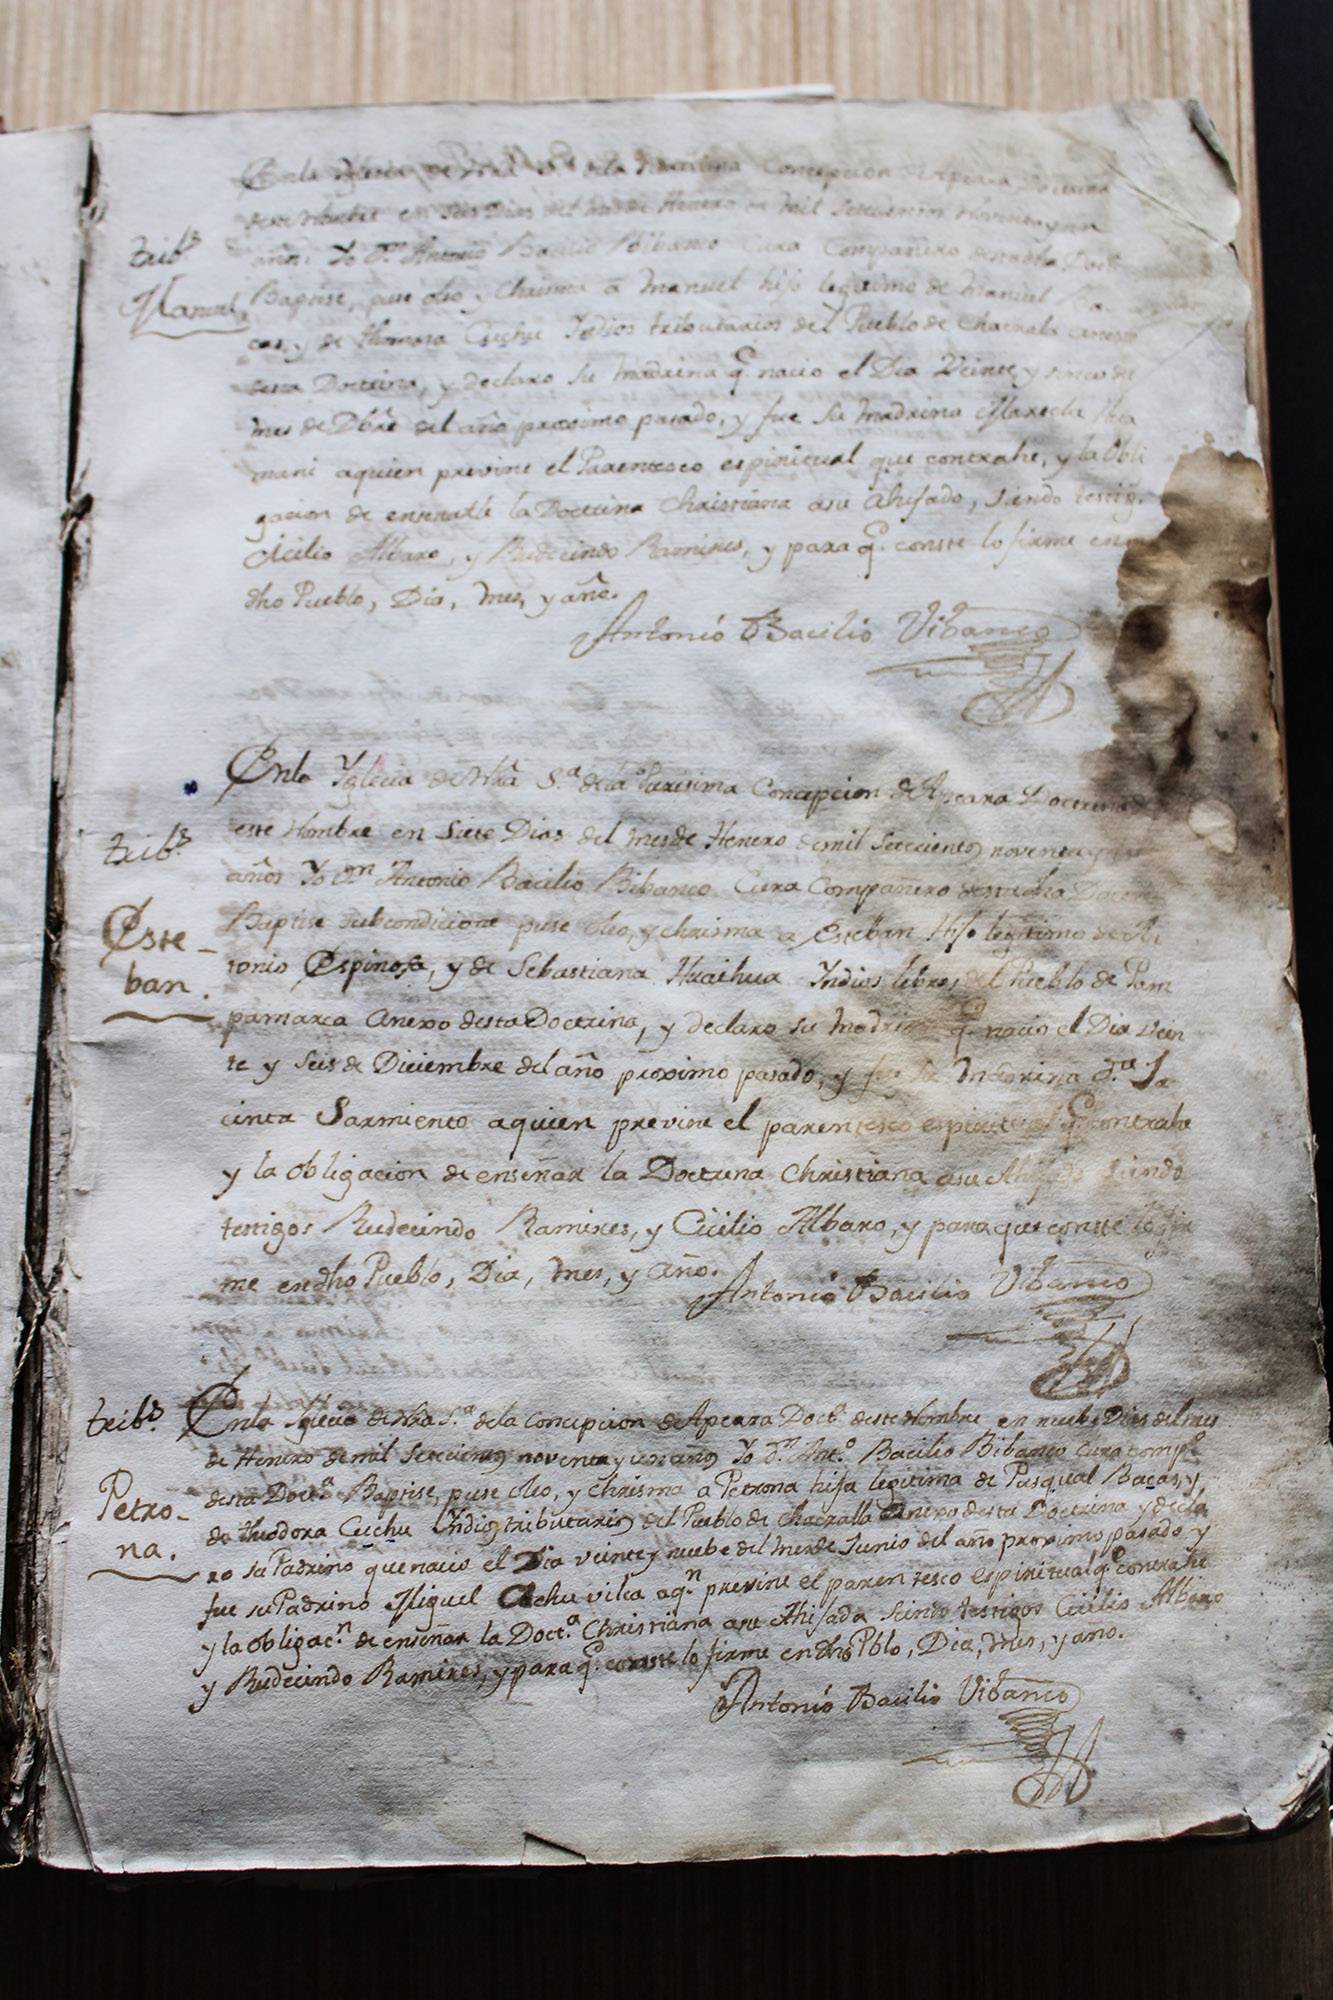 En la Yglecia de Nrã S.ª dela Purisima Concepcion de Apcara Doctrina
deeste Nombre en Seis Dias del mes de Henero de mil Setecientos Noventa y un
trib.s
años Yo D.n Antonio Bacilio Bibanco Cura Compañero desta dha Doct.
Manuel
Baptise, puse oleo, y Chrisma â Manuel hijo legitimo de Manuel Ba-
cas, y de Thomasa Cuchu Yndios tributarios del Pueblo de Chacralla
desta Doctrina, y declaro su Madrina q.e nacio el Dia Veinte y sinco de
mes de Dbre del año proximo pasado, y fue su Madrina Marcela Hua
mani aquien previne el Parentesco espiritual que contrahe, y la Obli
gacion de enseñarle la Doctrina Christiana asu Ahijado, siendo testig.
Cicilio Albaro, y Rudecindo Ramires, y para q.e conste lo firme en
dho Pueblo, Dia, Mes, y año.
Antonio Bacilio Vibanco
En la Yglecia de Nrã S.ª dela Purisima Concepcion de Apcara Doctrina de
este Nombre en Siete Dias del mes de Henero de mil Setecientos noventa y
trib.s
años Yo D.n Antonio Bacilio Bibanco Cura Compañero desta dha
Este-
ban.
Baptise subcondicione puse oleo, y chrisma a Esteban Hijo legitimo de An
tonio Espinosa, y de Sebastiana Huaihua Yndios libres del Pueblo de Pam
pamarca Anexo desta Doctrina, y declaro su Madrina q.e nacio el Dia vein
te y seis de Diciembre del año proximo pasado, y fue su Madrina D.ª Ja
cinta Sarmiento aquien previne el parentesco espiritual q.e contrahe
y la obligacion de enseñar la Doctrina Christiana asu Ahijado siendo
testigos Rudecindo Ramires, y Cicilio Albaro, y para que conste lo fir
me en dho Pueblo, Dia, Mes, y Año.
Antonio Bacilio Vibanco
trib.s
En la Yglecia de Nrã S.ª dela Concepcion de Apcara Doct.ª deste Nombre en nuebe Dias del mes
de Henero de mil Setecientos noventa y un años Yo D.n Ant.º Bacilio Bibanco Cura comp.º
Petro-
na.
desta Doct.ª Baptise, puse oleo, y Chrisma a Petrona hija legitima de Pasqual Bacas, y
de Theodora Cuchu Yndios tributarios del Pueblo de Chacralla Anexo desta Doctrina y decla
ro su Padrino que nacio el Dia veinte y nuebe del Mes de Junio del año proximo pasado y
fue su Padrino Miguel Cachu vilca aq.n previne el parentesco espiritual q.e contrahe
y la obligac.n de enseñar la Doct.ª Christiana asu Ahijada Siendo testigos Cicilio Albaro
y Rudecindo Ramires, y para q.e conste lo firme en dho Pblo, Dia, Mes, y año.
Antonio Bacilio Vibanco